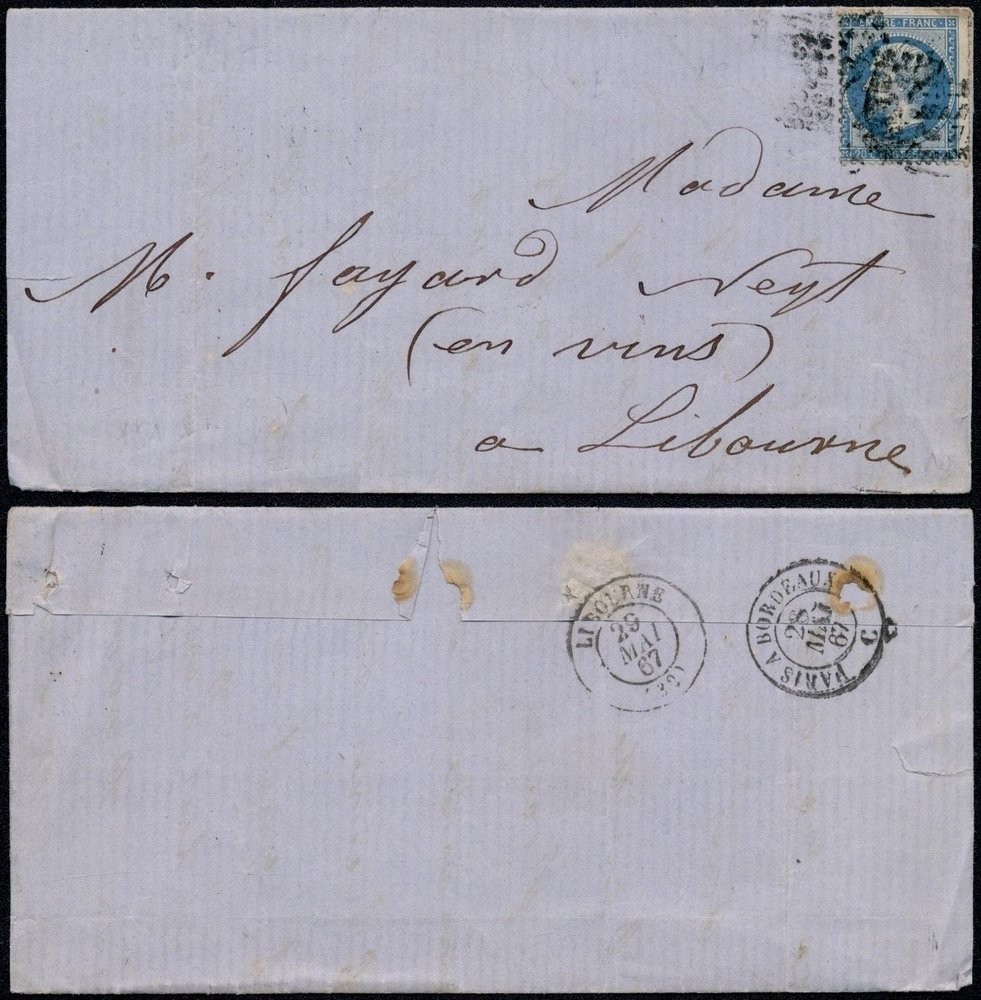 EMPIRE FRANC
Madame
M. Fayard Neyt
(en vins)
a Libourne
LIBOURNE
29
MAI
67
(32)
PARIS A BORDEAUX
28
MAI
67
C